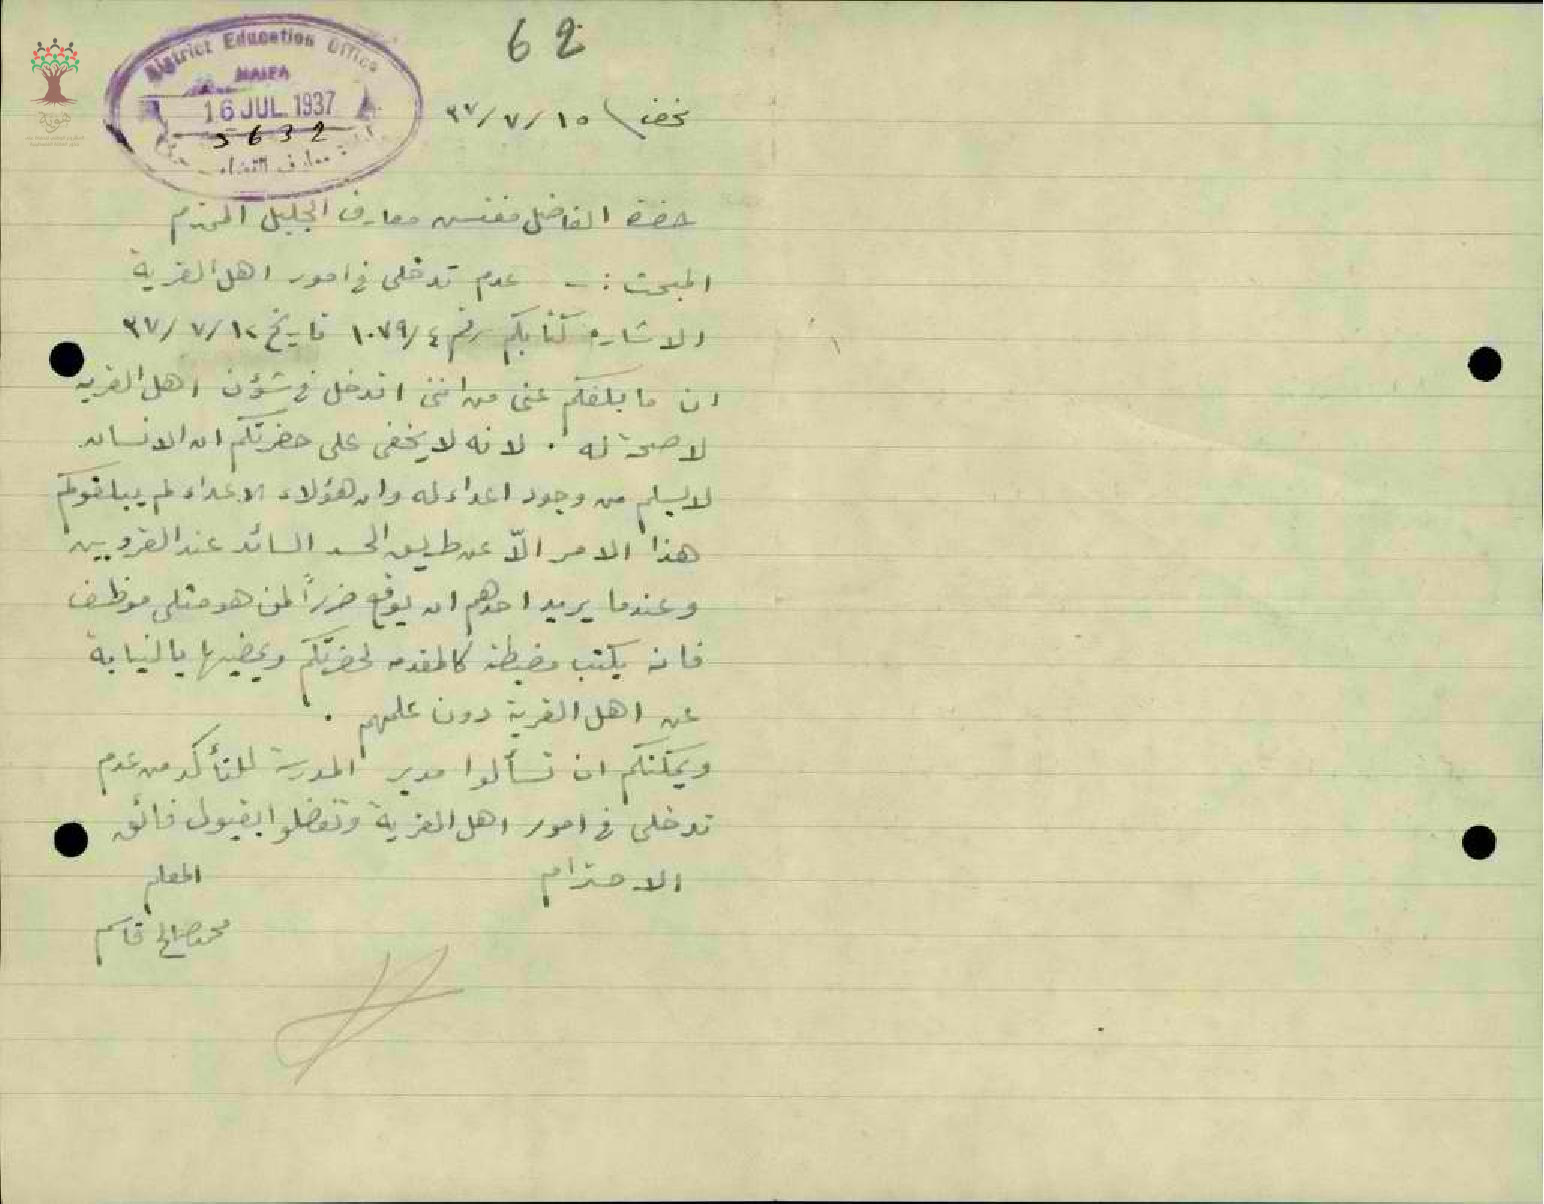 62
District Education Office
HAIFA
16 JUL. 1937
5632
نحف ١٥/٧/٣٧
حضرة الفاضل مفتش معارف الجليل المحترم
المبحث :- عدم تدخلى في امور اهل القرية
الاشاره كتابكم رقم ١٠٧٩/٤ تاريخ ٣٧/٧/١٢
ان ما بلغكم عنى من اننى اتدخل في شؤن اهل القريه
لا صحة له . لانه لا يخفى على حضرتكم ان الانسان
لا يسلم من وجود اعداء له وان هؤلاء الاعداء لم يبلغوكم
هذا الامر الّا عن طريق الحسد السائد عند القرويين
وعندما يريد احدهم ان يوقع ضرراً لمن هو مثلى موظف
فانه يكتب مضبطة كالمقدمه لحضرتكم ويمضيها بالنيابة
عن اهل القرية دون علمهم .
ويمكنكم ان تسألوا مدير المدرسة للتأكد من عدم
تدخلى في امور اهل القرية وتفضلوا بقبول فائق
الاحترام
المعلم
محمد صالح قاسم